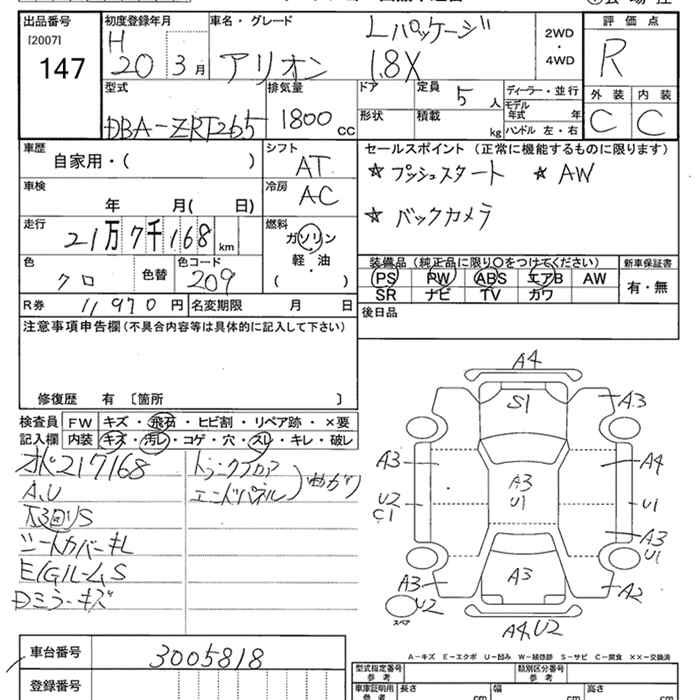 出品番号 初度登録年月 車名・グレード 評価点
[2007] H Lパッケージ 2WD
147 20 3月 アリオン 1.8X ・ R
4WD
型式 排気量 ドア 定員 5人 ディーラー・並行 外装 内装
DBA-ZRT265 1800cc 形状 積載 kg モデル年式 年 C C
ハンドル 左・右
車歴 シフト セールスポイント (正常に機能するものに限ります)
自家用・( ) AT ★プッシュスタート ★AW
車検 冷房
年 月( 日) AC ★バックカメラ
走行 燃料
21万7千168km ガソリン
軽・油 装備品 (純正品に限り○をつけてください) 新車保証書
色 クロ 色替 色コード 209 ( ) PS PW ABS エアB AW 有・無
SR ナビ TV カワ
R券 11970円 名変期限 月 日 後日品
注意事項申告欄 (不具合内容等は具体的に記入して下さい)
修復歴 有 〔箇所 〕
検査員 FW キズ・飛石・ヒビ割・リペア跡・×要
記入欄 内装 キズ・汚レ・コゲ・穴・スレ・キレ・破レ
217168 トランクフロア
A,U エンドパネル )曲がり
シートカバーキレ
E/GルームS
Dミラーキズ
A4
S1 A3
A3 A4
A3
U2 U1 U1
C1
A3
U1
A3 A3 A2
U2
スペア
A4,U2
A-キズ E-エクボ U-凹み W-補修跡 S-サビ C-腐食 ××-交換済
車台番号 3005818 型式指定番号 参考 類別区分番号 参考
登録番号 車庫証明用 参考 長さ cm 幅 cm 高さ cm